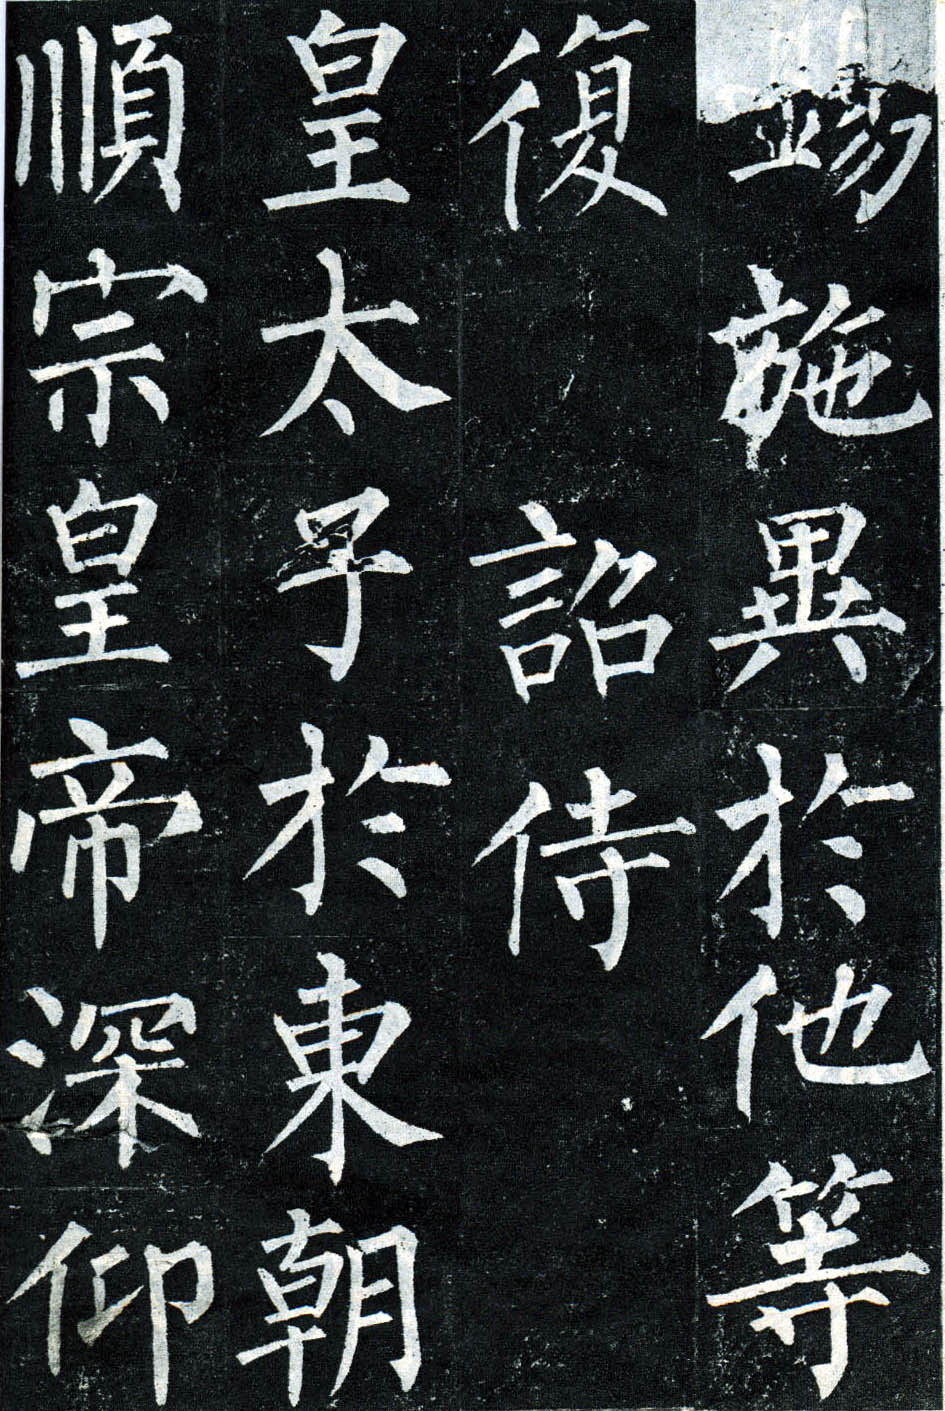 錫施異於他等
復詔侍
皇太子於東朝
順宗皇帝深仰